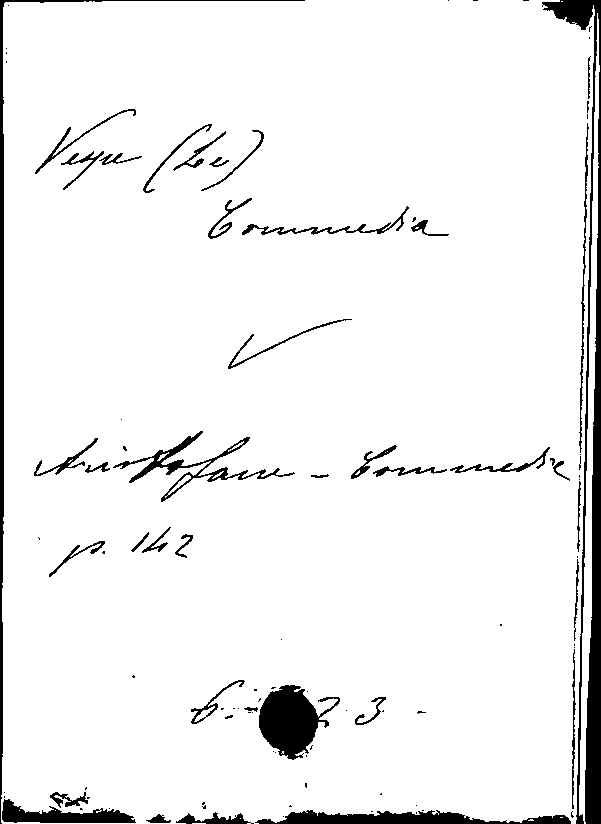 Vespe (Le)
Commedia
Aristofane - Commedie
p. 142
6. 23 -